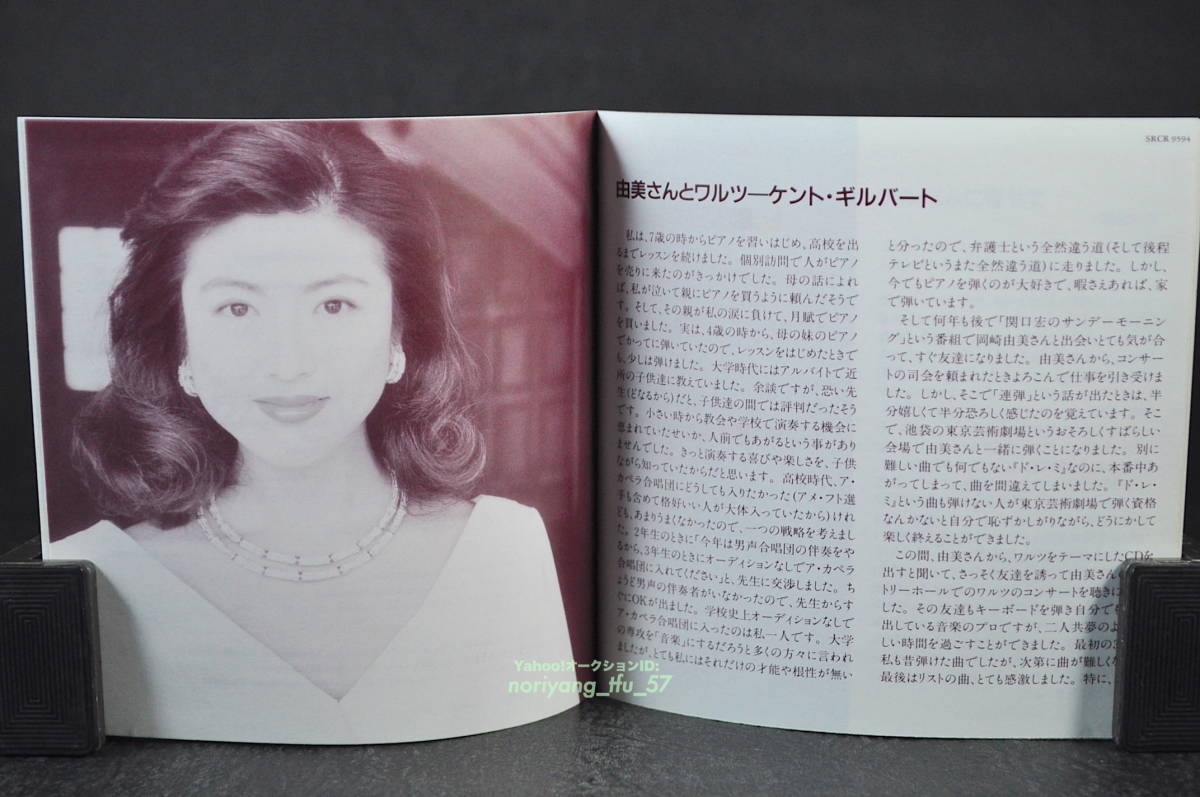 SRCR 9594
由美さんとワルツ―ケント・ギルバート
私は、7歳の時からピアノを習いはじめ、高校を出
るまでレッスンを続けました。個別訪問で人がピアノ
を売りに来たのがきっかけでした。母の話によれ
ば、私が泣いて親にピアノを買うように頼んだそうで
す。そして、その親が私の涙に負けて、月賦でピアノ
を買いました。実は、4歳の時から、母の妹のピアノ
でかってに弾いていたので、レッスンをはじめたときで
も、少しは弾けました。大学時代にはアルバイトで近
所の子供達に教えていました。余談ですが、恐い先
生(どなるから)だと、子供達の間では評判だったそう
です。小さい時から教会や学校で演奏する機会に
恵まれていたせいか、人前でもあがるという事があり
ませんでした。きっと演奏する喜びや楽しさを、子供
ながら知っていたからだと思います。高校時代、ア・
カペラ合唱団にどうしても入りたかった(アメ・フト選
手も含めて格好いい人が大体入っていたから)けれ
ども、あまりうまくなかったので、一つの戦略を考えまし
た。2年生のときに「今年は男声合唱団の伴奏をや
るから、3年生のときにオーディションなしでア・カペラ
合唱団に入れてください」と、先生に交渉しました。ち
ょうど男声の伴奏者がいなかったので、先生からす
ぐにOKが出ました。学校史上オーディションなしで
ア・カペラ合唱団に入ったのは私一人です。大学
の専攻を「音楽」にするだろうと多くの方々に言われ
ましたが、とても私にはそれだけの才能や根性が無い
と分ったので、弁護士という全然違う道(そして後程
テレビというまた全然違う道)に走りました。しかし、
今でもピアノを弾くのが大好きで、暇さえあれば、家
で弾いています。
そして何年も後で「関口宏のサンデーモーニン
グ」という番組で岡崎由美さんと出会いとても気が合
って、すぐ友達になりました。由美さんから、コンサー
トの司会を頼まれたときよろこんで仕事を引き受けま
した。しかし、そこで「連弾」という話が出たときは、半
分嬉しくて半分恐ろしく感じたのを覚えています。そこ
で、池袋の東京芸術劇場というおそろしくすばらしい
会場で由美さんと一緒に弾くことになりました。別に
難しい曲でも何でもない『ド・レ・ミ』なのに、本番中あ
がってしまって、曲を間違えてしまいました。『ド・レ・
ミ』という曲も弾けない人が東京芸術劇場で弾く資格
なんかないと自分で恥ずかしがりながら、どうにかして
楽しく終えることができました。
この間、由美さんから、ワルツをテーマにしたCDを
出すと聞いて、さっそく友達を誘って由美さん
トリーホールでのワルツのコンサートを聴きに
した。その友達もキーボードを弾き自分で
出している音楽のプロですが、二人共夢のよ
しい時間を過ごすことができました。最初の
私も昔弾けた曲でしたが、次第に曲が難しく
最後はリストの曲、とても感激しました。特に、
Yahoo!オークションID:
noriyang_tfu_57